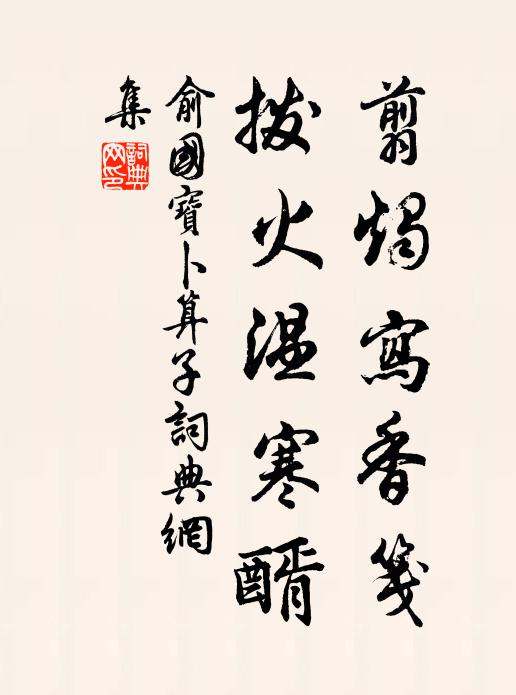 翦燭寫香箋
撥火溫寒醑
俞國寶卜算子詞典網
集
詞典網印